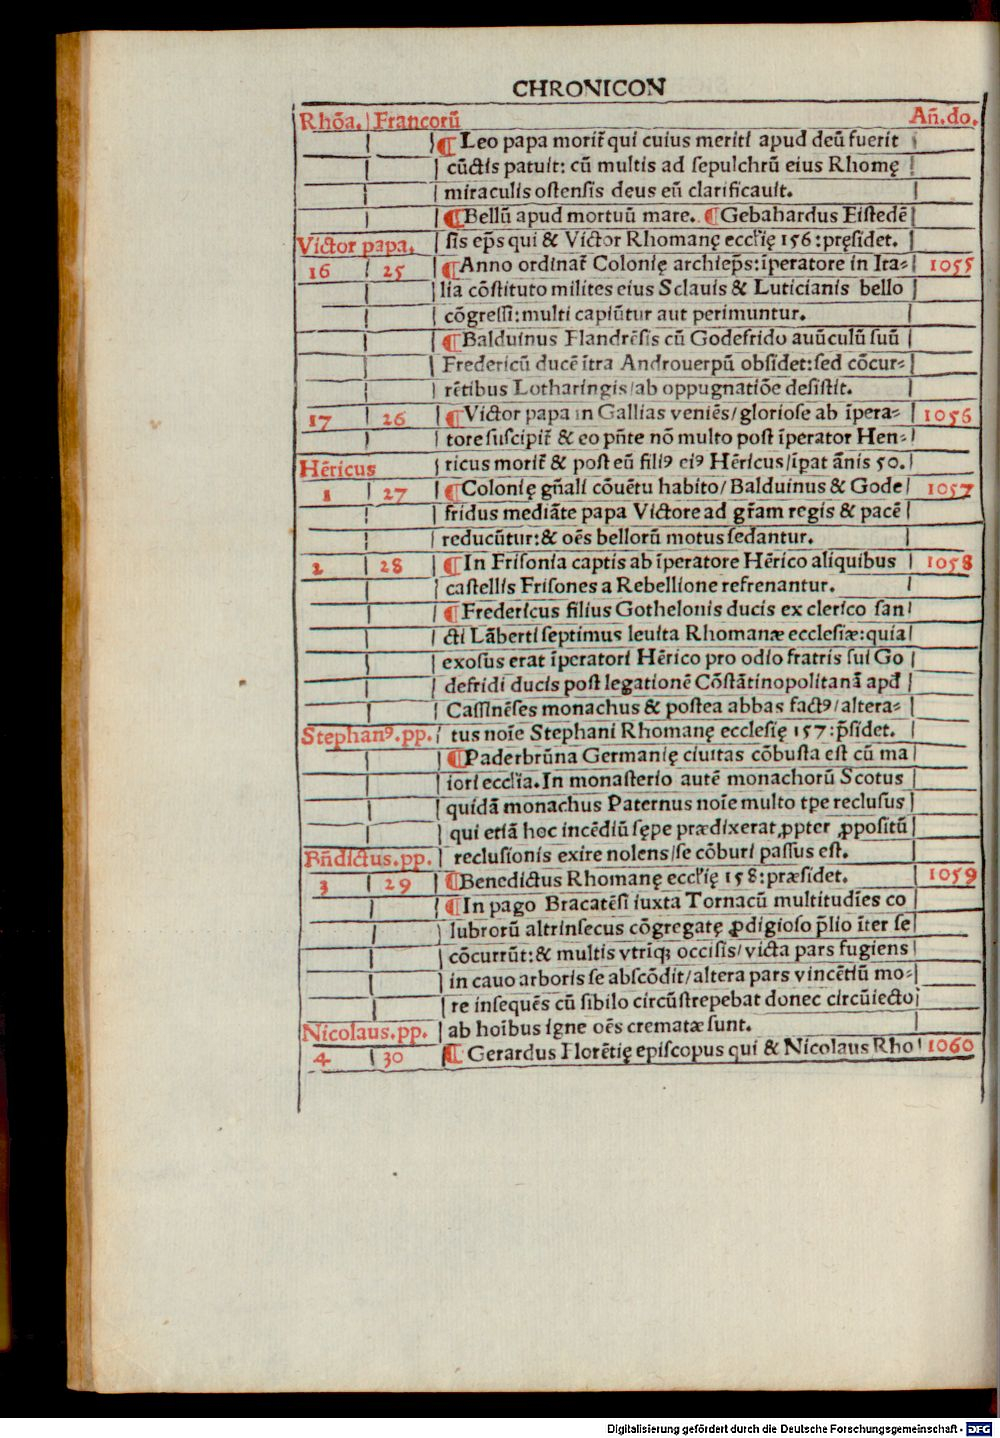 CHRONICON
Rhōa. Francorū Añ.do.
¶ Leo papa morit̃ qui cuius meriti apud deū fuerit
cūctis patuit: cū multis ad sepulchrū eius Rhomę
miraculis ostensis deus eū clarificauit.
¶ Bellū apud mortuū mare. ¶ Gebahardus Eistedē
Victor papa. sis ep̃s qui & Victor Rhomanę eccl'ię 156: pręsidet.
16 25 ¶ Anno ordinat̃ Colonię archiep̃s: īperatore in Ita- 1055
lia cōstituto milites eius Sclauis & Luticianis bello
cōgressi: multi capiūtur aut perimuntur.
¶ Balduinus Flandrēsis cū Godefrido auūculū suū
Fredericū ducē ītra Androuerpū obsidet: sed cōcur-
rētibus Lotharingis/ab oppugnatiōe desistit.
17 26 ¶ Victor papa in Gallias veniēs/gloriose ab īpera- 1056
tore suscipit̃ & eo pñte nō multo post īperator Hen-
Hēricus ricus morit̃ & post eū fili⁹ ei⁹ Hēricus/īpat ānis 50.
1 27 ¶ Colonię gñali cōuētu habito/Balduinus & Gode 1057
fridus mediāte papa Victore ad gr̃am regis & pacē
reducūtur: & oēs bellorū motus sedantur.
2 28 ¶ In Frisonia captis ab īperatore Hērico aliquibus 1058
castellis Frisones a Rebellione refrenantur.
¶ Fredericus filius Gothelonis ducis ex clerico san
cti Lāberti septimus leuita Rhomanæ ecclesiæ: quia
exosus erat īperatori Hērico pro odio fratris sui Go
defridi ducis post legationē Cōstātinopolitanā apđ
Cassinēses monachus & postea abbas fact⁹/altera-
Stephan⁹.pp. tus noīe Stephani Rhomanę ecclesię 157: p̄sidet.
¶ Paderbrūna Germanię ciuitas cōbusta est cū ma
iori eccl'ia. In monasterio autē monachorū Scotus
quidā monachus Paternus noīe multo tpe reclusus
qui etiā hoc incēdiū sępe prædixerat ꝓpter ꝓpositū
Bñdictus.pp. reclusionis exire nolens/se cōburi passus est.
3 29 ¶ Benedictus Rhomanę eccl'ię 158: præsidet. 1059
¶ In pago Bracatēsi iuxta Tornacū multitudīes co
lubrorū altrinsecus cōgregatę ꝓdigioso p̄lio īter se
cōcurrūt: & multis vtriqꝫ occisis/victa pars fugiens
in cauo arboris se abscōdit/altera pars vincētiū mo-
re insequēs cū sibilo circūstrepebat donec circūiecto
Nicolaus.pp. ab hoībus igne oēs crematæ sunt.
4 30 ¶ Gerardus Florētię episcopus qui & Nicolaus Rho 1060
Digitalisierung gefördert durch die Deutsche Forschungsgemeinschaft - DFG